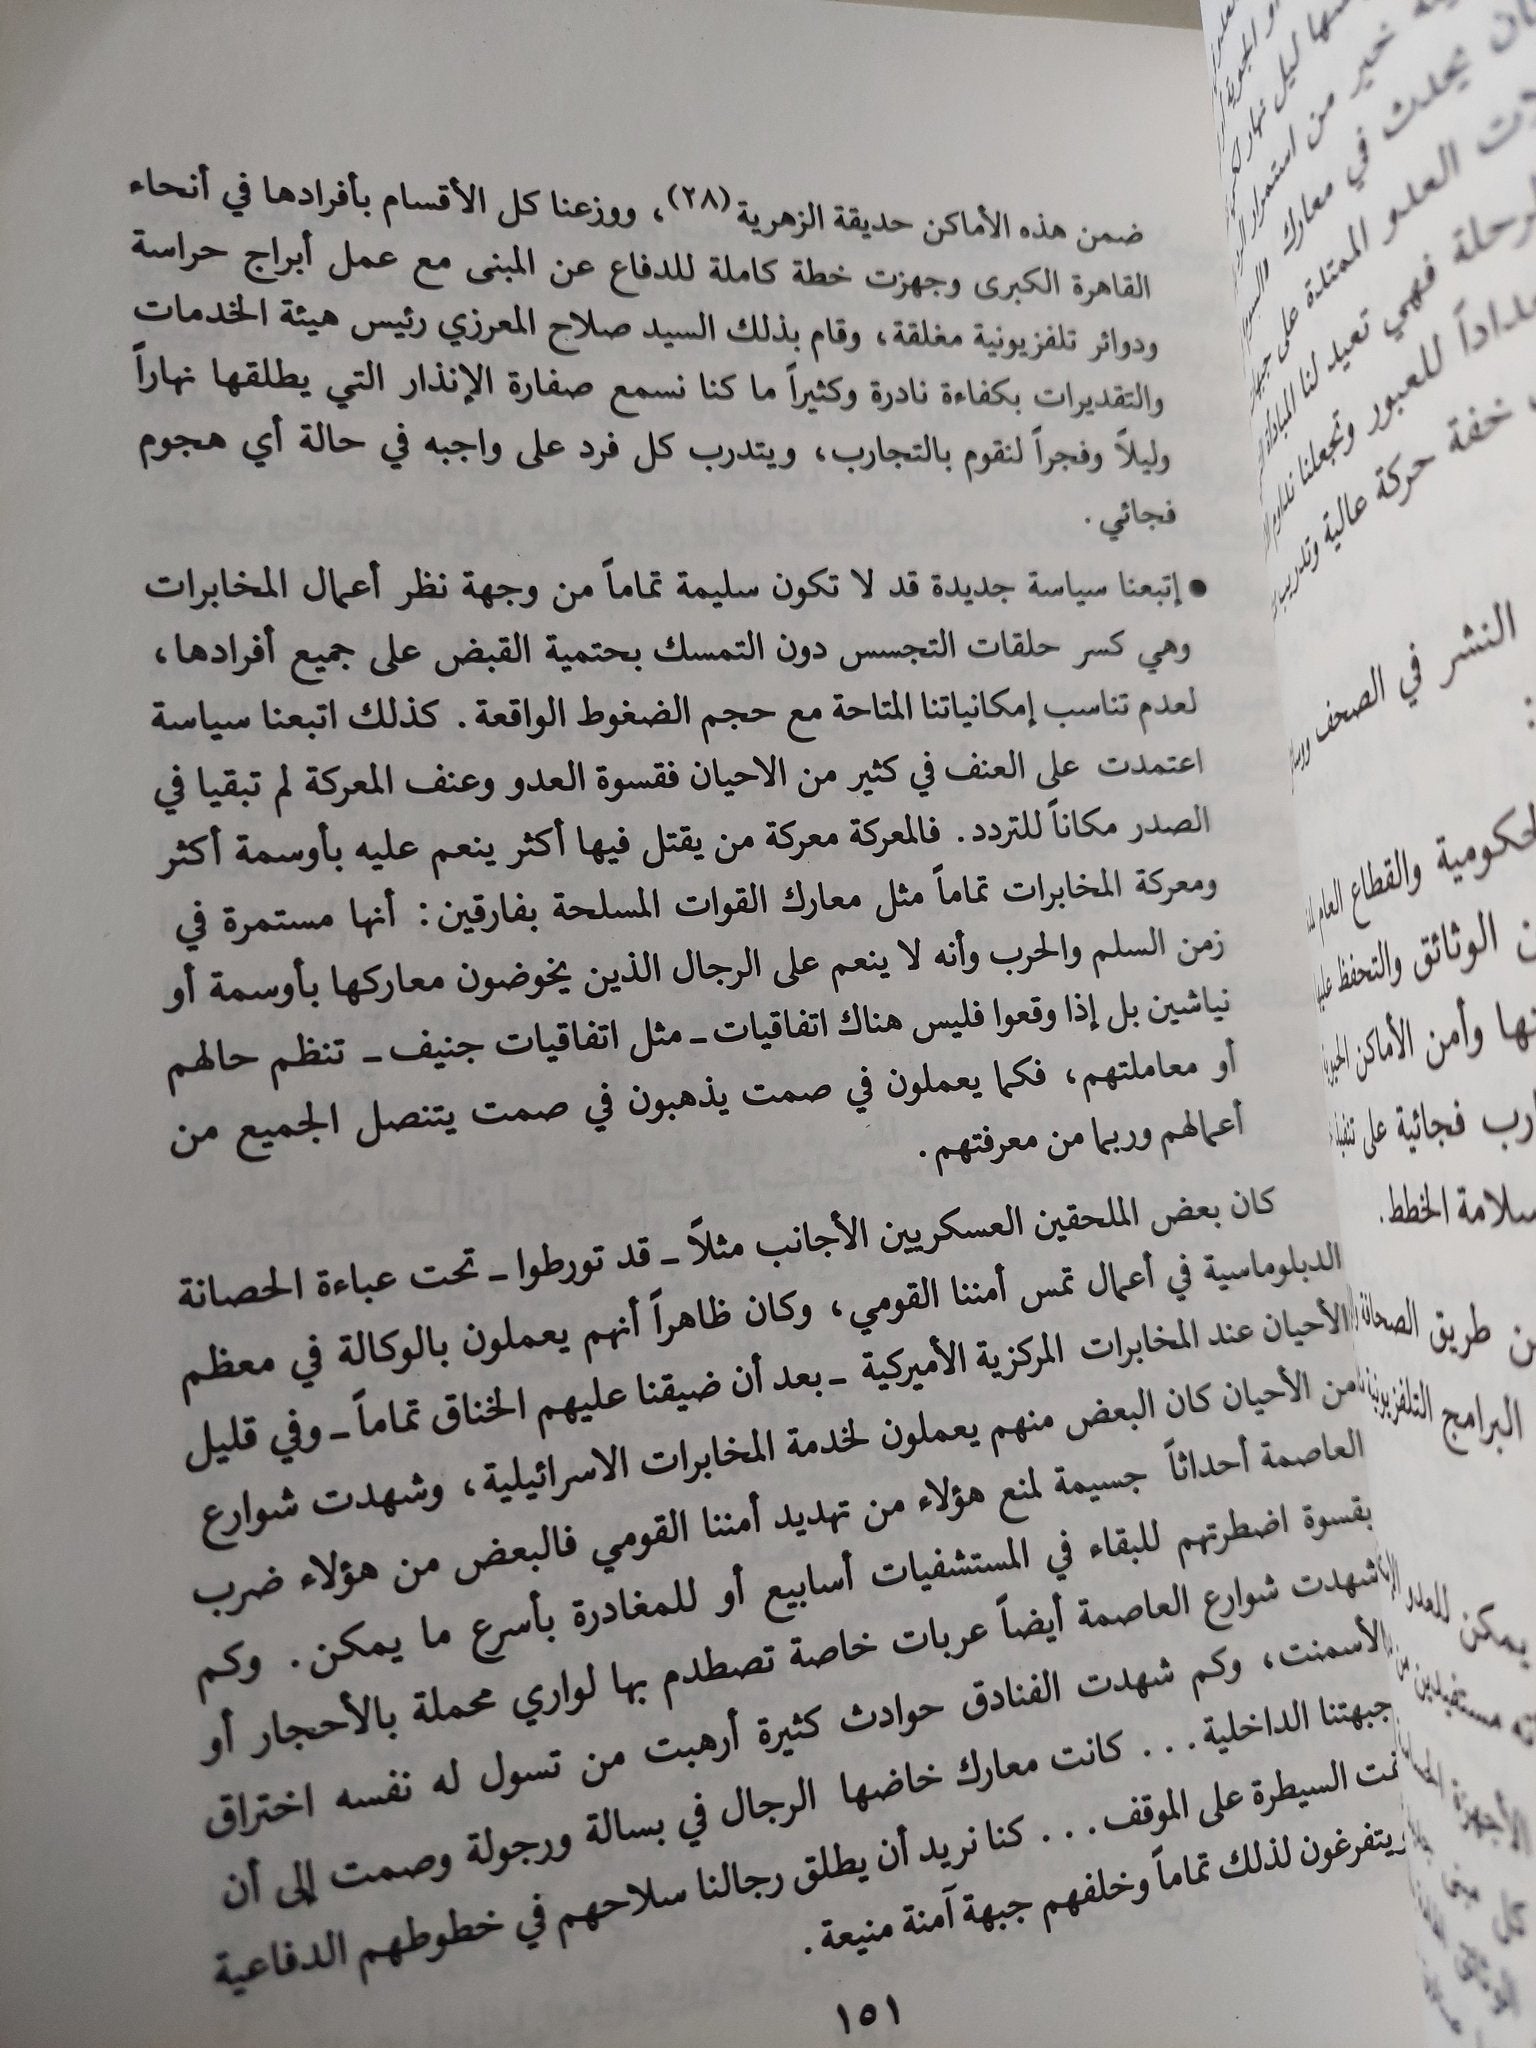 ضمن هذه الأماكن حديقة الزهرية (٢٨)، ووزعنا كل الأقسام بأفرادها في أنحاء
القاهرة الكبرى وجهزت خطة كاملة للدفاع عن المبنى مع عمل أبراج حراسة
ودوائر تلفزيونية مغلقة، وقام بذلك السيد صلاح المعرزي رئيس هيئة الخدمات
والتقديرات بكفاءة نادرة وكثيراً ما كنا نسمع صفارة الإنذار التي يطلقها نهاراً
وليلاً وفجراً لنقوم بالتجارب، ويتدرب كل فرد على واجبه في حالة أي هجوم
فجائي.
● إتبعنا سياسة جديدة قد لا تكون سليمة تماماً من وجهة نظر أعمال المخابرات
وهي كسر حلقات التجسس دون التمسك بحتمية القبض على جميع أفرادها،
لعدم تناسب إمكانياتنا المتاحة مع حجم الضغوط الواقعة. كذلك اتبعنا سياسة
اعتمدت على العنف في كثير من الاحيان فقسوة العدو وعنف المعركة لم تبقيا في
الصدر مكاناً للتردد. فالمعركة معركة من يقتل فيها أكثر ينعم عليه بأوسمة أكثر
ومعركة المخابرات تماماً مثل معارك القوات المسلحة بفارقين: أنها مستمرة في
زمن السلم والحرب وأنه لا ينعم على الرجال الذين يخوضون معاركها بأوسمة أو
نياشين بل إذا وقعوا فليس هناك اتفاقيات ـ مثل اتفاقيات جنيف ـ تنظم حالهم
أو معاملتهم، فكما يعملون في صمت يذهبون في صمت يتنصل الجميع من
أعمالهم وربما من معرفتهم.
كان بعض الملحقين العسكريين الأجانب مثلاً ـ قد تورطوا ـ تحت عباءة الحصانة
الدبلوماسية في أعمال تمس أمننا القومي، وكان ظاهراً أنهم يعملون بالوكالة في معظم
الأحيان عند المخابرات المركزية الأميركية ـ بعد أن ضيقنا عليهم الخناق تماماً ـ وفي قليل
من الأحيان كان البعض منهم يعملون لخدمة المخابرات الاسرائيلية، وشهدت شوارع
العاصمة أحداثاً جسيمة لمنع هؤلاء من تهديد أمننا القومي فالبعض من هؤلاء ضرب
بقسوة اضطرتهم للبقاء في المستشفيات أسابيع أو للمغادرة بأسرع ما يمكن. وكم
شهدت شوارع العاصمة أيضاً عربات خاصة تصطدم بها لواري محملة بالأحجار أو
الأسمنت، وكم شهدت الفنادق حوادث كثيرة أرهبت من تسول له نفسه اختراق
جبهتنا الداخلية... كانت معارك خاضها الرجال في بسالة ورجولة وصمت إلى أن
تمت السيطرة على الموقف... كنا نريد أن يطلق رجالنا سلاحهم في خطوطهم الدفاعية
ويتفرغون لذلك تماماً وخلفهم جبهة آمنة منيعة.
١٥١
ليل نهار
خير من استمرار
يحدث في معارك
العدو الممتدة على
فهي تعيد لنا المبادأة
للعبور وتجعلنا
خفة حركة عالية
النشر في الصحف
والقطاع العام
الوثائق والتحفظ
وأمن الأماكن
فجائية على
سلامة الخطط.
طريق الصحافة
البرامج التلفزيونية
يمكن للعدو
مستفيدين من